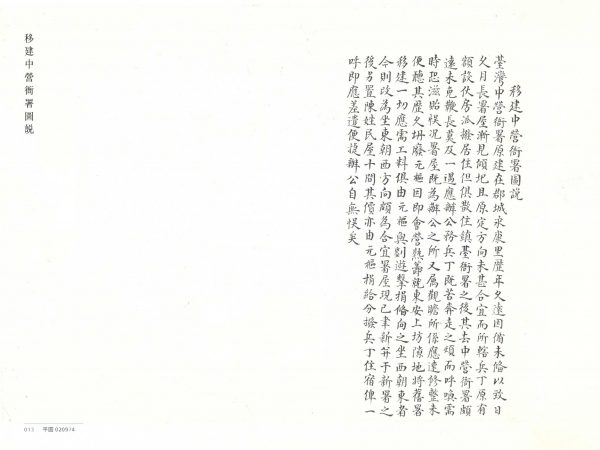 移建中營衙署圖説
臺灣中營衙署原建在郡城永康里歷年久遠因循未脩以致日
久月長署屋漸見傾圮且原定方向未甚合宜而所轄兵丁原有
額設伙房派撥居住但俱散住鎮臺衙署之後其去中營衙署頗
遠未免鞭長莫及一遇應辦公務兵丁既苦奔走之煩而呼喚需
時恐滋貽悞況署屋既為辦公之所又屬觀瞻所係應速修整未
便聽其歷久坍廢元樞因即會營熟籌就東安上坊隙地將舊署
移建一切應需工料俱由元樞與遊擊捐脩向之坐西朝東者
今則改為坐東朝西方向頗為合宜署屋現已聿新并于新署之
後另置陳姓民屋十間其價亦由元樞捐給分撥兵丁住宿俾一
呼即應差遣便捷辦公自無悞矣
移建中營衙署圖説
013 平圖 020974